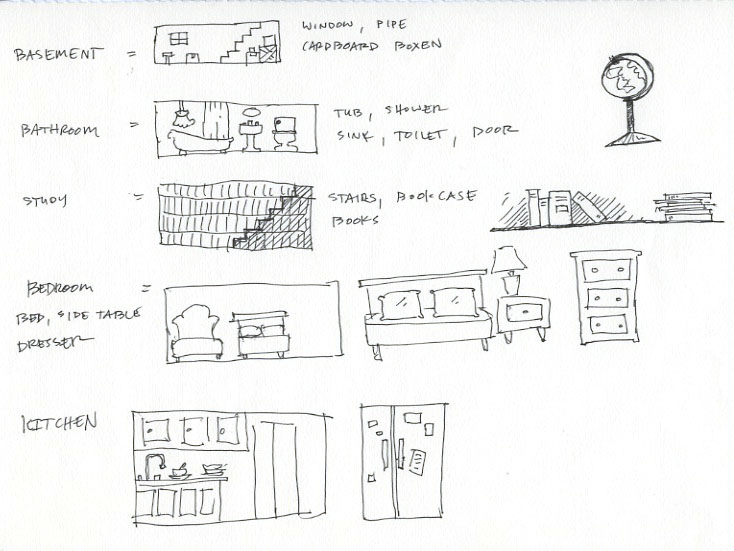 BASEMENT =
WINDOW, PIPE
CARDBOARD BOXEN
BATHROOM =
TUB, SHOWER
SINK, TOILET, DOOR
STUDY =
STAIRS, BOOKCASE
BOOKS
BEDROOM =
BED, SIDE TABLE
DRESSER
KITCHEN